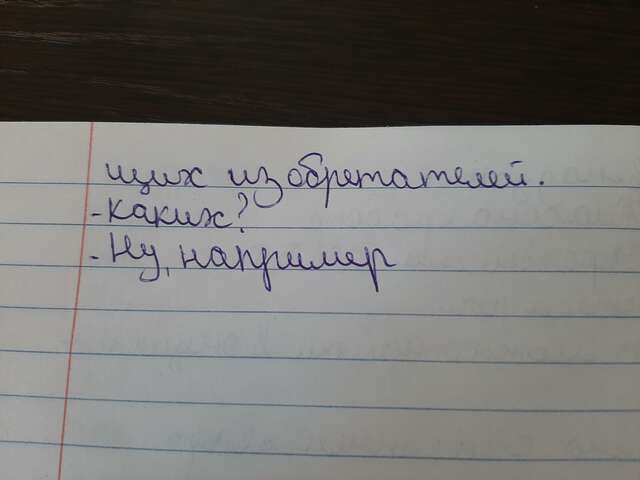 щих изобретателей.
- Каких?
- Ну, например